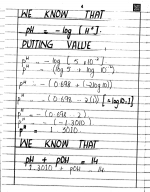 WE KNOW THAT
pH = - log [H⁺].
PUTTING VALUE,
pH = - log (5 × 10⁻²)
pH = - (log 5 + log 10⁻²)
pH = - (0.698 + (-2 log 10))
pH = - (0.698 - 2(1)) [∵ log 10=1]
pH = - (0.698 - 2)
pH = - (-1.3010)
pH = 1.3010
WE KNOW THAT
pH + pOH = 14
1.3010 + pOH = 14